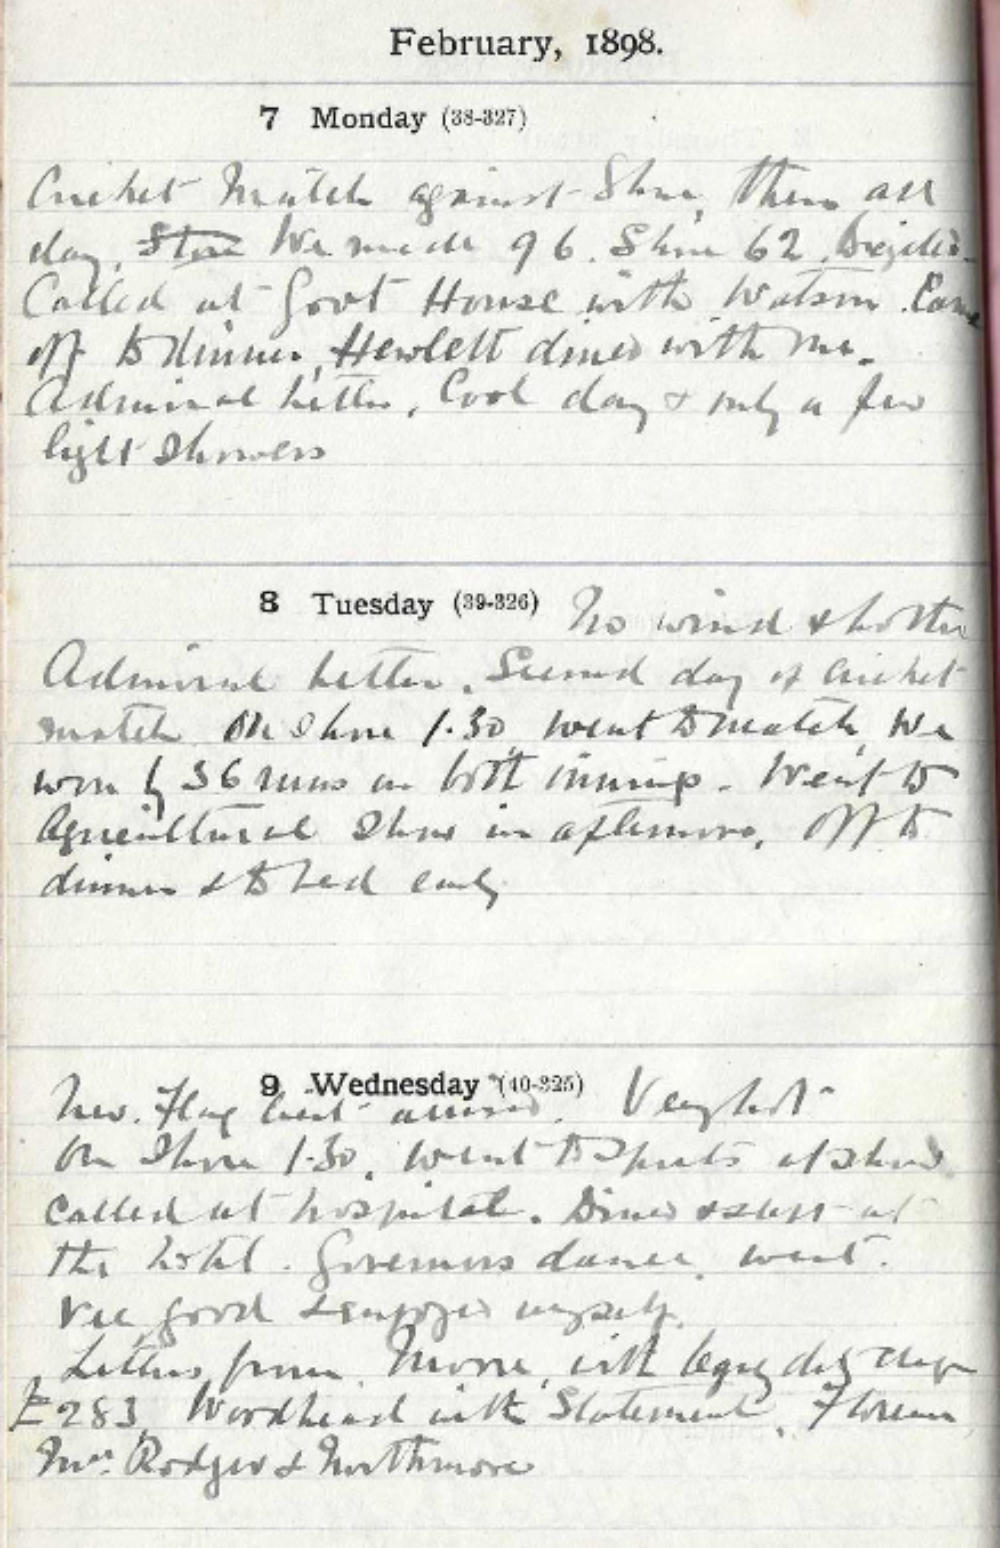 February, 1898.
7 Monday (38-327)
Cricket Match against Shore, there all
day. Store We made 96. Shore 62. Bicycled.
Called at Govt House with Watson. Came
off to dinner, Hewlett dined with me.
Admiral better, Cool day & only a few
light showers
8 Tuesday (39-326) No wind & hotter
Admiral better. Second day of cricket
match On Shore 1.30, went to match, We
won by 36 runs on both innings. Went to
Agricultural Show in afternoon, off to
dinner & to bed early
9 Wednesday (40-325)
New. Flag arrived. Very hot
On Shore 1.30, went to Sports at show
Called at hospital. Dined & slept at
the hotel. Governors dance, went.
good & enjoyed myself.
Letters from with
£283, Woodhead with Statement,
Mrs. Rodger & Northmore